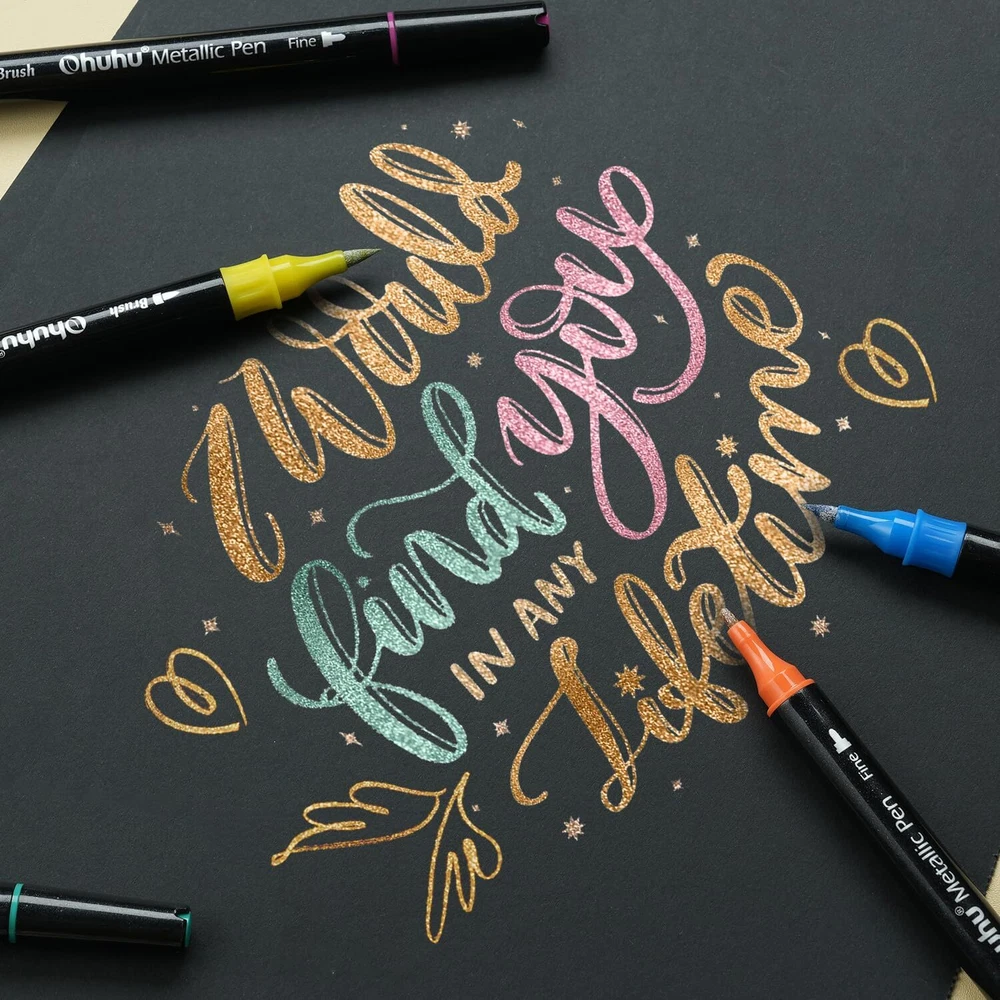 Brush Ohuhu® Metallic Pen Fine
I Would
find you
IN ANY
Lifetime
Ohuhu® Brush
Fine Ohuhu® Metallic Pen